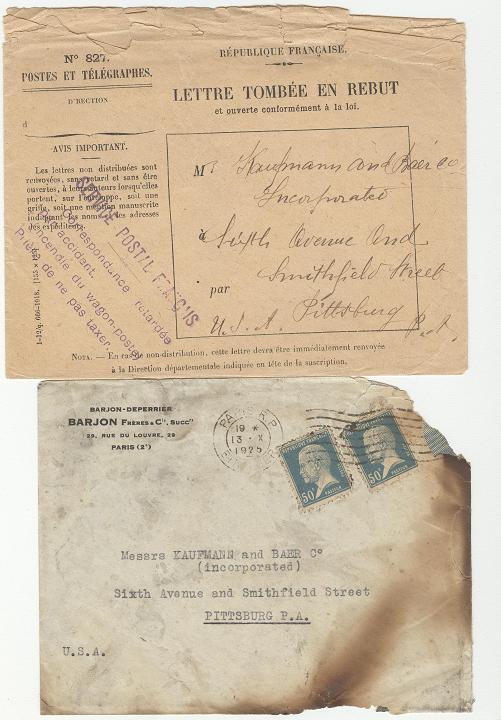 Nº 827.
POSTES ET TÉLÉGRAPHES.
D'RECTION
d
AVIS IMPORTANT.
Les lettres non distribuées sont
renvoyées, sans retard et sans être
ouvertes, à leurs auteurs lorsqu'elles
portent, sur l'enveloppe, soit une
griffe, soit une mention manuscrite
indiquant les noms et les adresses
des expéditeurs.
RÉPUBLIQUE FRANÇAISE.
LETTRE TOMBÉE EN REBUT
et ouverte conformément à la loi.
M Kaufmann and Baer Co
Incorporated
à Sixth Avenue and
Smithfield Street
par Pittsburg
U.S.A. P.A.
SERVICE POSTAL FRANÇAIS
Correspondance retardée
accident
incendie du wagon-postal
Prière de ne pas taxer.
NOTA. — En cas de non-distribution, cette lettre devra être immédiatement renvoyée
à la Direction départementale indiquée en tête de la suscription.
BARJON-DEPERRIER
BARJON FRÈRES & Cie, Succrs
29, RUE DU LOUVRE, 29
PARIS (2e)
PARIS R.P.
19 *
13 - X
1925
RÉPUBLIQUE FRANÇAISE
50c
PASTEUR
RÉPUBLIQUE FRANÇAISE
50c
PASTEUR
Messrs KAUFMANN and BAER Cº
(incorporated)
Sixth Avenue and Smithfield Street
PITTSBURG P.A.
U.S.A.